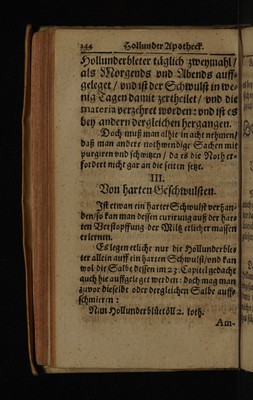 244 Hollunder Apotheck.
Hollunderbleter täglich zweymahl/
als Morgends vnd Abends auff-
geleget/ vnd ist der Schwulst in we-
nig Tagen damit zertheilet/ vnd die
materia verzehret worden: vnd ist es
bey andern dergleichen hergangen.
Doch muß man alhie in acht nehmen/
daß man andere nothwendige Sachen mit
purgiren vnd schwitzen/ da es die Noth er-
fordert nicht gar an die seiten setze.
III.
Von harten Geschwulsten.
Ist etwan ein harter Schwulst vorhan-
den/ so kan man dessen curirung auß der har-
ten Verstopffung der Miltz etlicher massen
erlernen.
Es legen etliche nur die Hollunderble-
ter allein auff ein harten Schwulst/ vnd kan
wol die Salbe dessen im 23. Capitel gedacht
auch hie auffgeleget werden: doch mag man
zuvor dieselbt oder dergleichen Salbe auff-
schmieren:
Nim Hollunderblüetöll 2. loth.
Am-